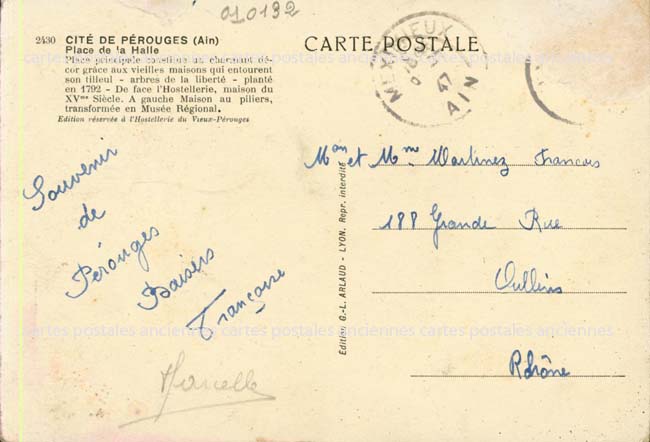 010132
2430 CITÉ DE PÉROUGES (Ain)
Place de la Halle
Place principale constitue un charmant dé-
cor grâce aux vieilles maisons qui entourent
son tilleul - arbres de la liberté - planté
en 1792 - De face l'Hostellerie, maison du
XVme Siècle. A gauche Maison au piliers,
transformée en Musée Régional.
Edition réservée à l'Hostellerie du Vieux-Pérouges
CARTE POSTALE
AIN
Souvenir
de
Pérouges
Baisers
Françoise
Marcelle
Edition G.-L. ARLAUD - LYON. Repr. interdite
Mon et Mme Martinez Francois
188 Grande Rue
Oullins
Rhône
cartes postales anciennes cartes postales anciennes cartes postales anciennes
cartes postales anciennes cartes postales anciennes cartes postales anciennes